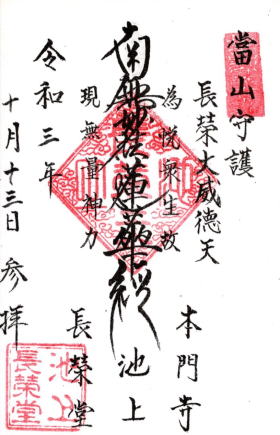 當山守護
長榮大威德天
為悅眾生故
南無妙法蓮華經
現無量神力
令和三年
十月十三日参拜
本門寺
池上
長榮堂
池上
長榮堂